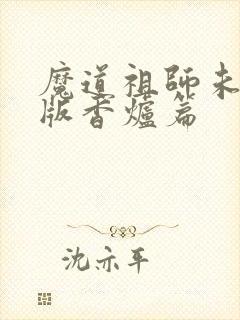 魔道祖師未
版香爐篇
沈亦平